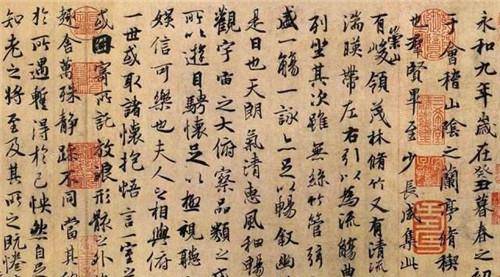 永和九年歲在癸丑暮春之
于會稽山陰之蘭亭脩稧
也羣賢畢至少長咸集此
有崇山峻領茂林脩竹又有清流
湍暎帶左右引以為流觴曲
列坐其次雖無絲竹管弦
盛一觴一詠亦足以暢叙幽
是日也天朗氣清惠風和暢
觀宇宙之大俯察品類之盛
所以遊目騁懷足以極視聽
娛信可樂也夫人之相與俯
一世或取諸懷抱悟言一室之
或因寄所託放浪形骸之外
趣舍萬殊靜躁不同當其
於所遇蹔得於己怏然自
知老之將至及其所之既惓